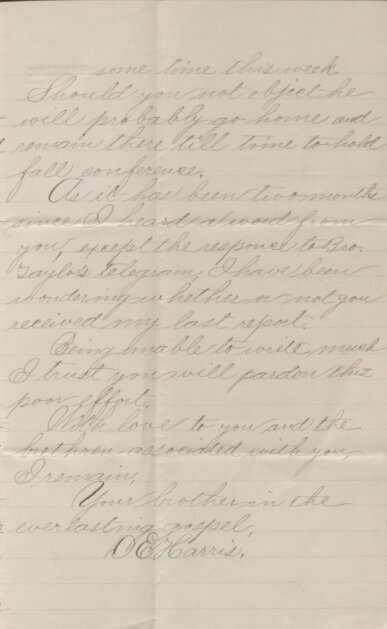 some time this week.
Should you not object he
will probably go home and
remain there till time to hold
fall conference.
As it has been two months
since I heard a word from
you, except the responce to Bro.
Taylor's telegram, I have been
wondering whether or not you
received my last report.
Being unable to write much
I trust you will pardon this
poor effort.
With love to you and the
brethren associated with you,
I remain,
Your brother in the
everlasting gospel,
D E Harris.